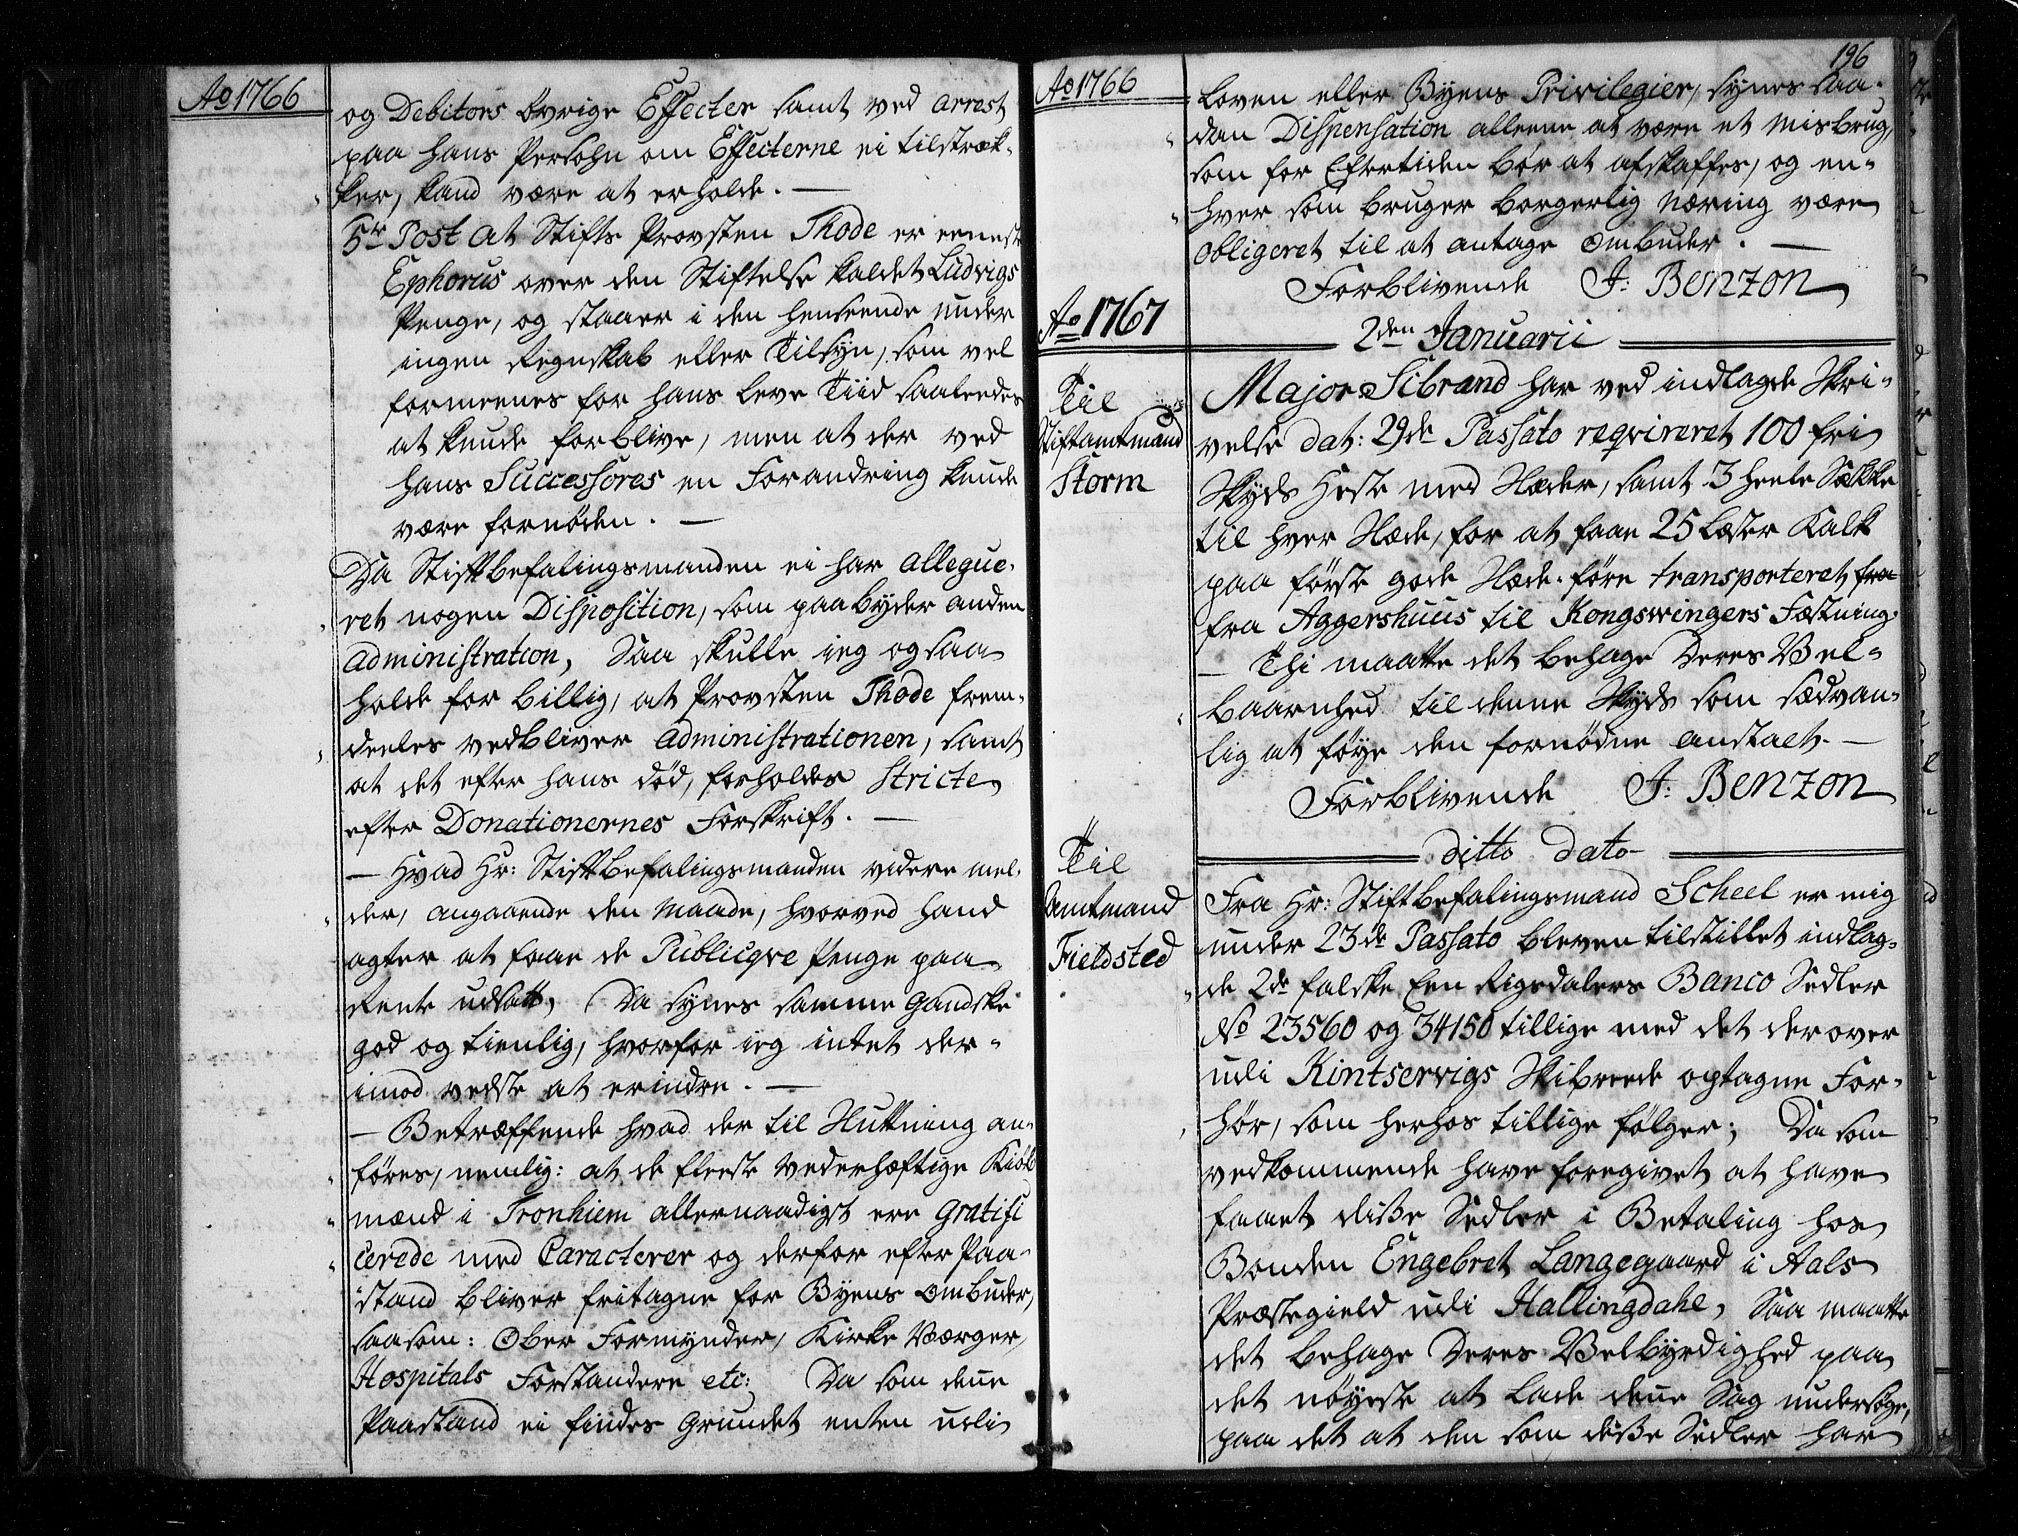 Ao 1766
og Debitors övrige Effecter samt ved arrest
paa hans Persohn om Effecterne ei tilstræk-
ker, kand være at erholde. —
5te Post at Stifts Provsten Thode er eeneste
Ephorus over den Stiftelse kaldet Ludvigs
Penge, og staaer i den henseende under
ingen Regnskab eller Tilsyn, som vel
formeenes for hans leve Tiid saaledes
at kunde forblive, men at der ved
hans Successores en Forandring kunde
være fornøden. —
Da Stiftbefalingsmanden ei har allegue-
ret nogen Disposition, som paabyder anden
administration, Saa skulle ieg ogsaa
holde for billig, at Provsten Thode frem-
deeles vedbliver administrationen, samt
at det efter hans död, forholdes Stricte
efter Donationernes Forskrift. —
— Hvad Hr: Stiftbefalingsmanden videre mel-
der, angaaende den Maade, hvorved hand
agter at faae de Publicqve Penge paa
Rente udsatt, Da synes samme Gandske
god og tienlig, hvorfor ieg intet der-
imod vedste at erindre. —
— Betræffende hvad der til Sluttning an-
föres, nemlig: at de fleeste vederhæftige Kiöb
mænd i Tronhiem allernaadigst ere Gratifi
cerede med Caracterer og derfor efter Paa-
stand bliver fritagne for Byens Ombuder,
saasom: Ober Formynder, Kirke Værger,
Hospitals Forstandere etc: Da som denne
Paastand ei findes Grundet enten udi
196
Ao 1766
Loven eller Byens Privilegier, synes saa-
dan Dispensation alleene at være et Misbrug,
som for Eftertiden bör at afskaffes, og en-
hver som bruger borgerlig Næring være
obligeret til at antage Ombuder. —
Forblivende J: Benzon
Ao 1767
2den Januarii
Til
Stiftamtmand
Storm
Major Sibrand har ved indlagde Skri-
velse dat: 29de Passato reqvireret 100 fri
Skyds Heste med Slæder, samt 3 heele Sække
til hver Slæde, for at faae 25 Læster Kalk
paa förste gode Slæde-före transporteret fra
fra Aggershuus til Kongswingers Fæstning.
— Thi maatte det behage Deres Vel-
baarnhed til denne Skyds som sædvan-
lig at föye den fornödne anstalt. —
Forblivende J: Benzon
ditto dato
Til
Amtmand
Fieldsted
Fra Hr: Stiftbefalingsmand Scheel er mig
under 23de Passato bleven tilstillet indlag-
de 2de falske Een Rigsdalers Banco Sedler
No 23560 og 34150 tillige med det derover
udi Kintservigs Skibrede optagne For-
hör, som herhos tillige fölger; Da som
vedkommende have foregivet at have
faaet disse Sedler i Betaling hos
Bonden Engebret Langegaard i Aals
Præstegield udi Hallingdahl, Saa maatte
det behage Deres Velbyrdighed paa
det nöyeste at lade denne Sag undersöge,
paa det at den som disse Sedler har